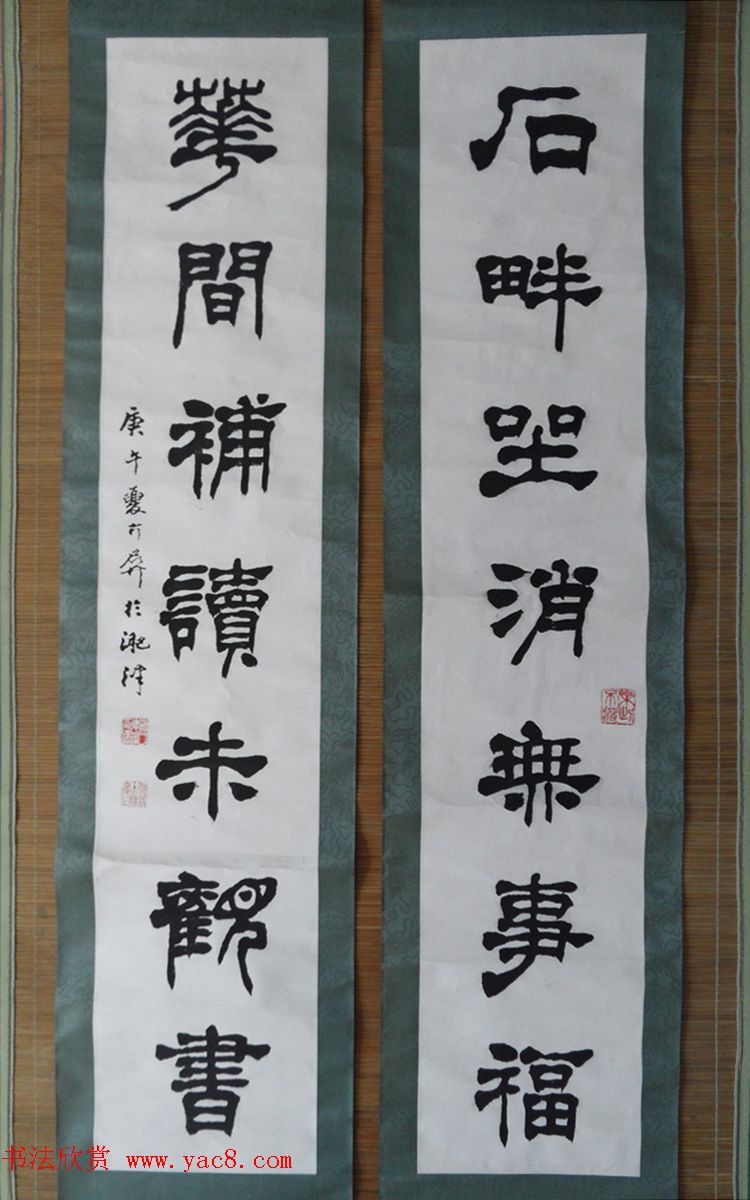 石畔坐消無事福
華間補讀未觀書
庚午夏方犇於淝津
书法欣赏 www.yac8.com